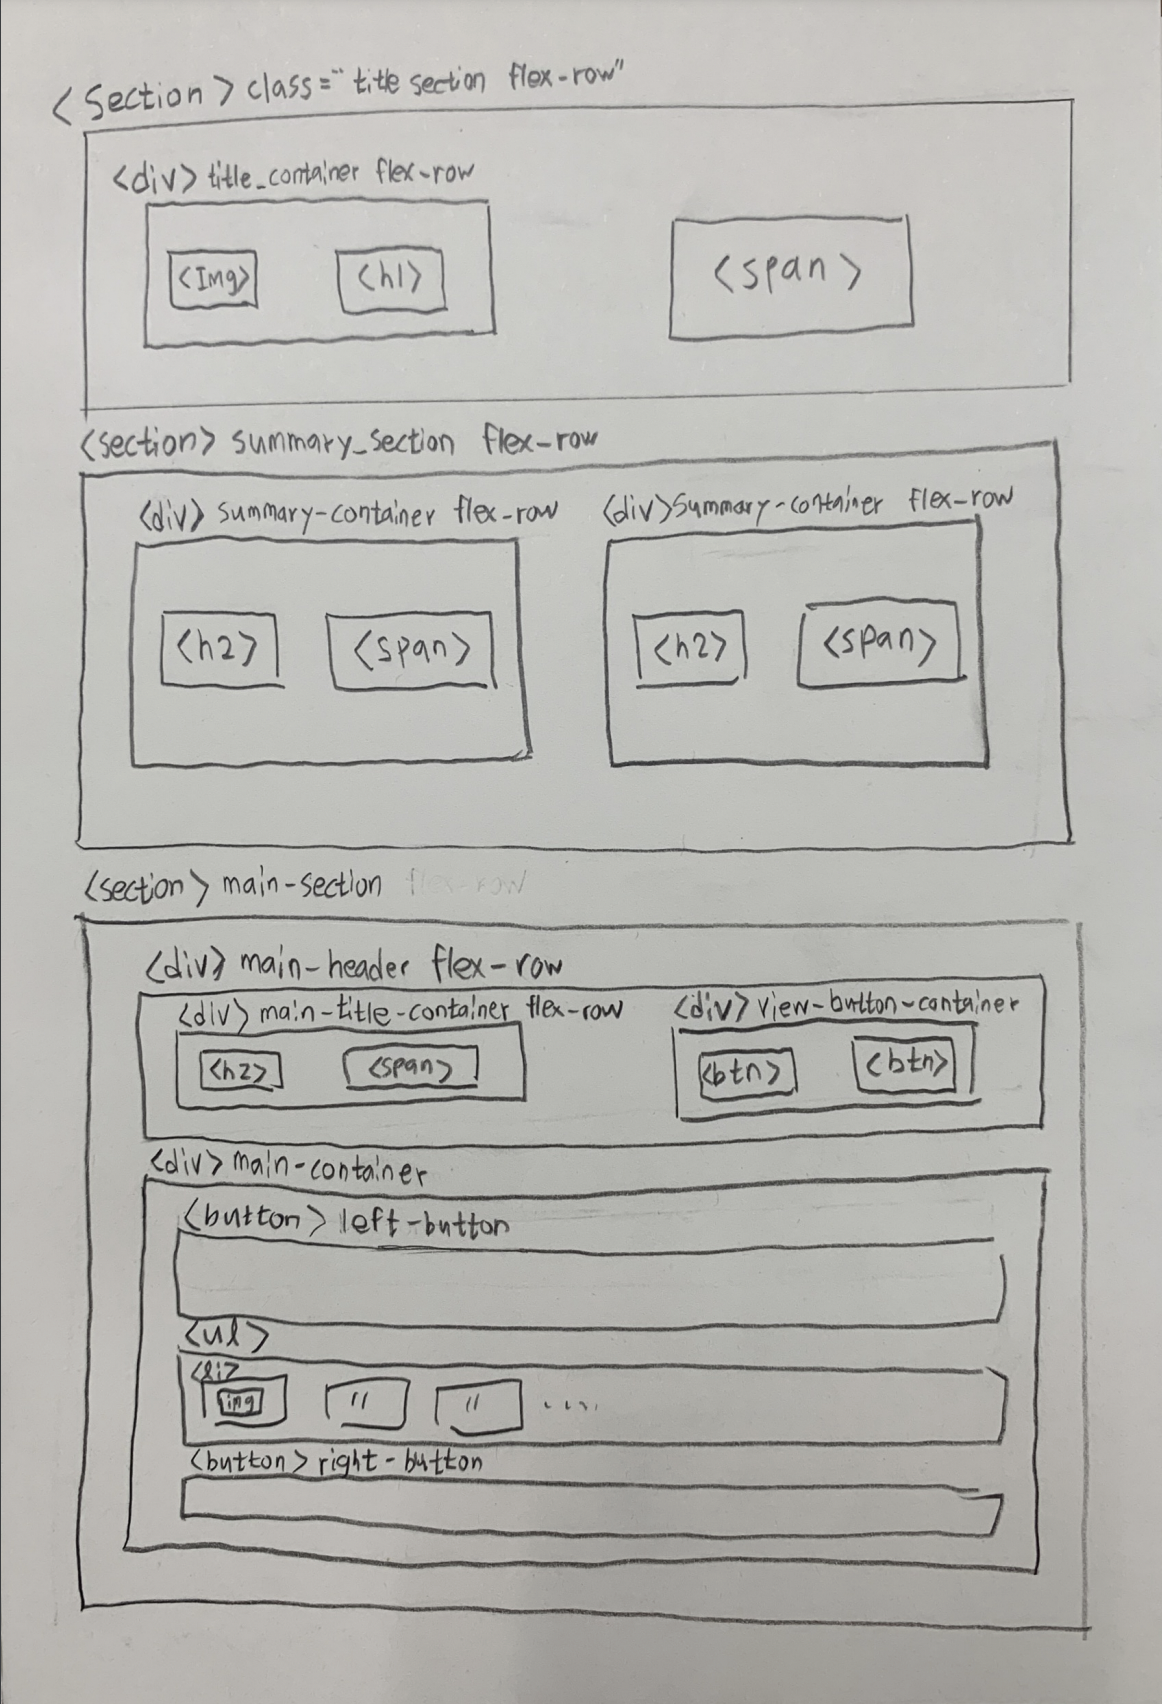 <section> class="title section flex-row"
<div> title_container flex-row
<Img> <h1> <span>
<section> summary_section flex-row
<div> summary-container flex-row <div> summary-container flex-row
<h2> <span> <h2> <span>
<section> main-section flex-row
<div> main-header flex-row
<div> main-title-container flex-row <div> view-button-container
<h2> <span> <btn> <btn>
<div> main-container
<button> left-button
<ul>
<li>
img " " ....
<button> right-button